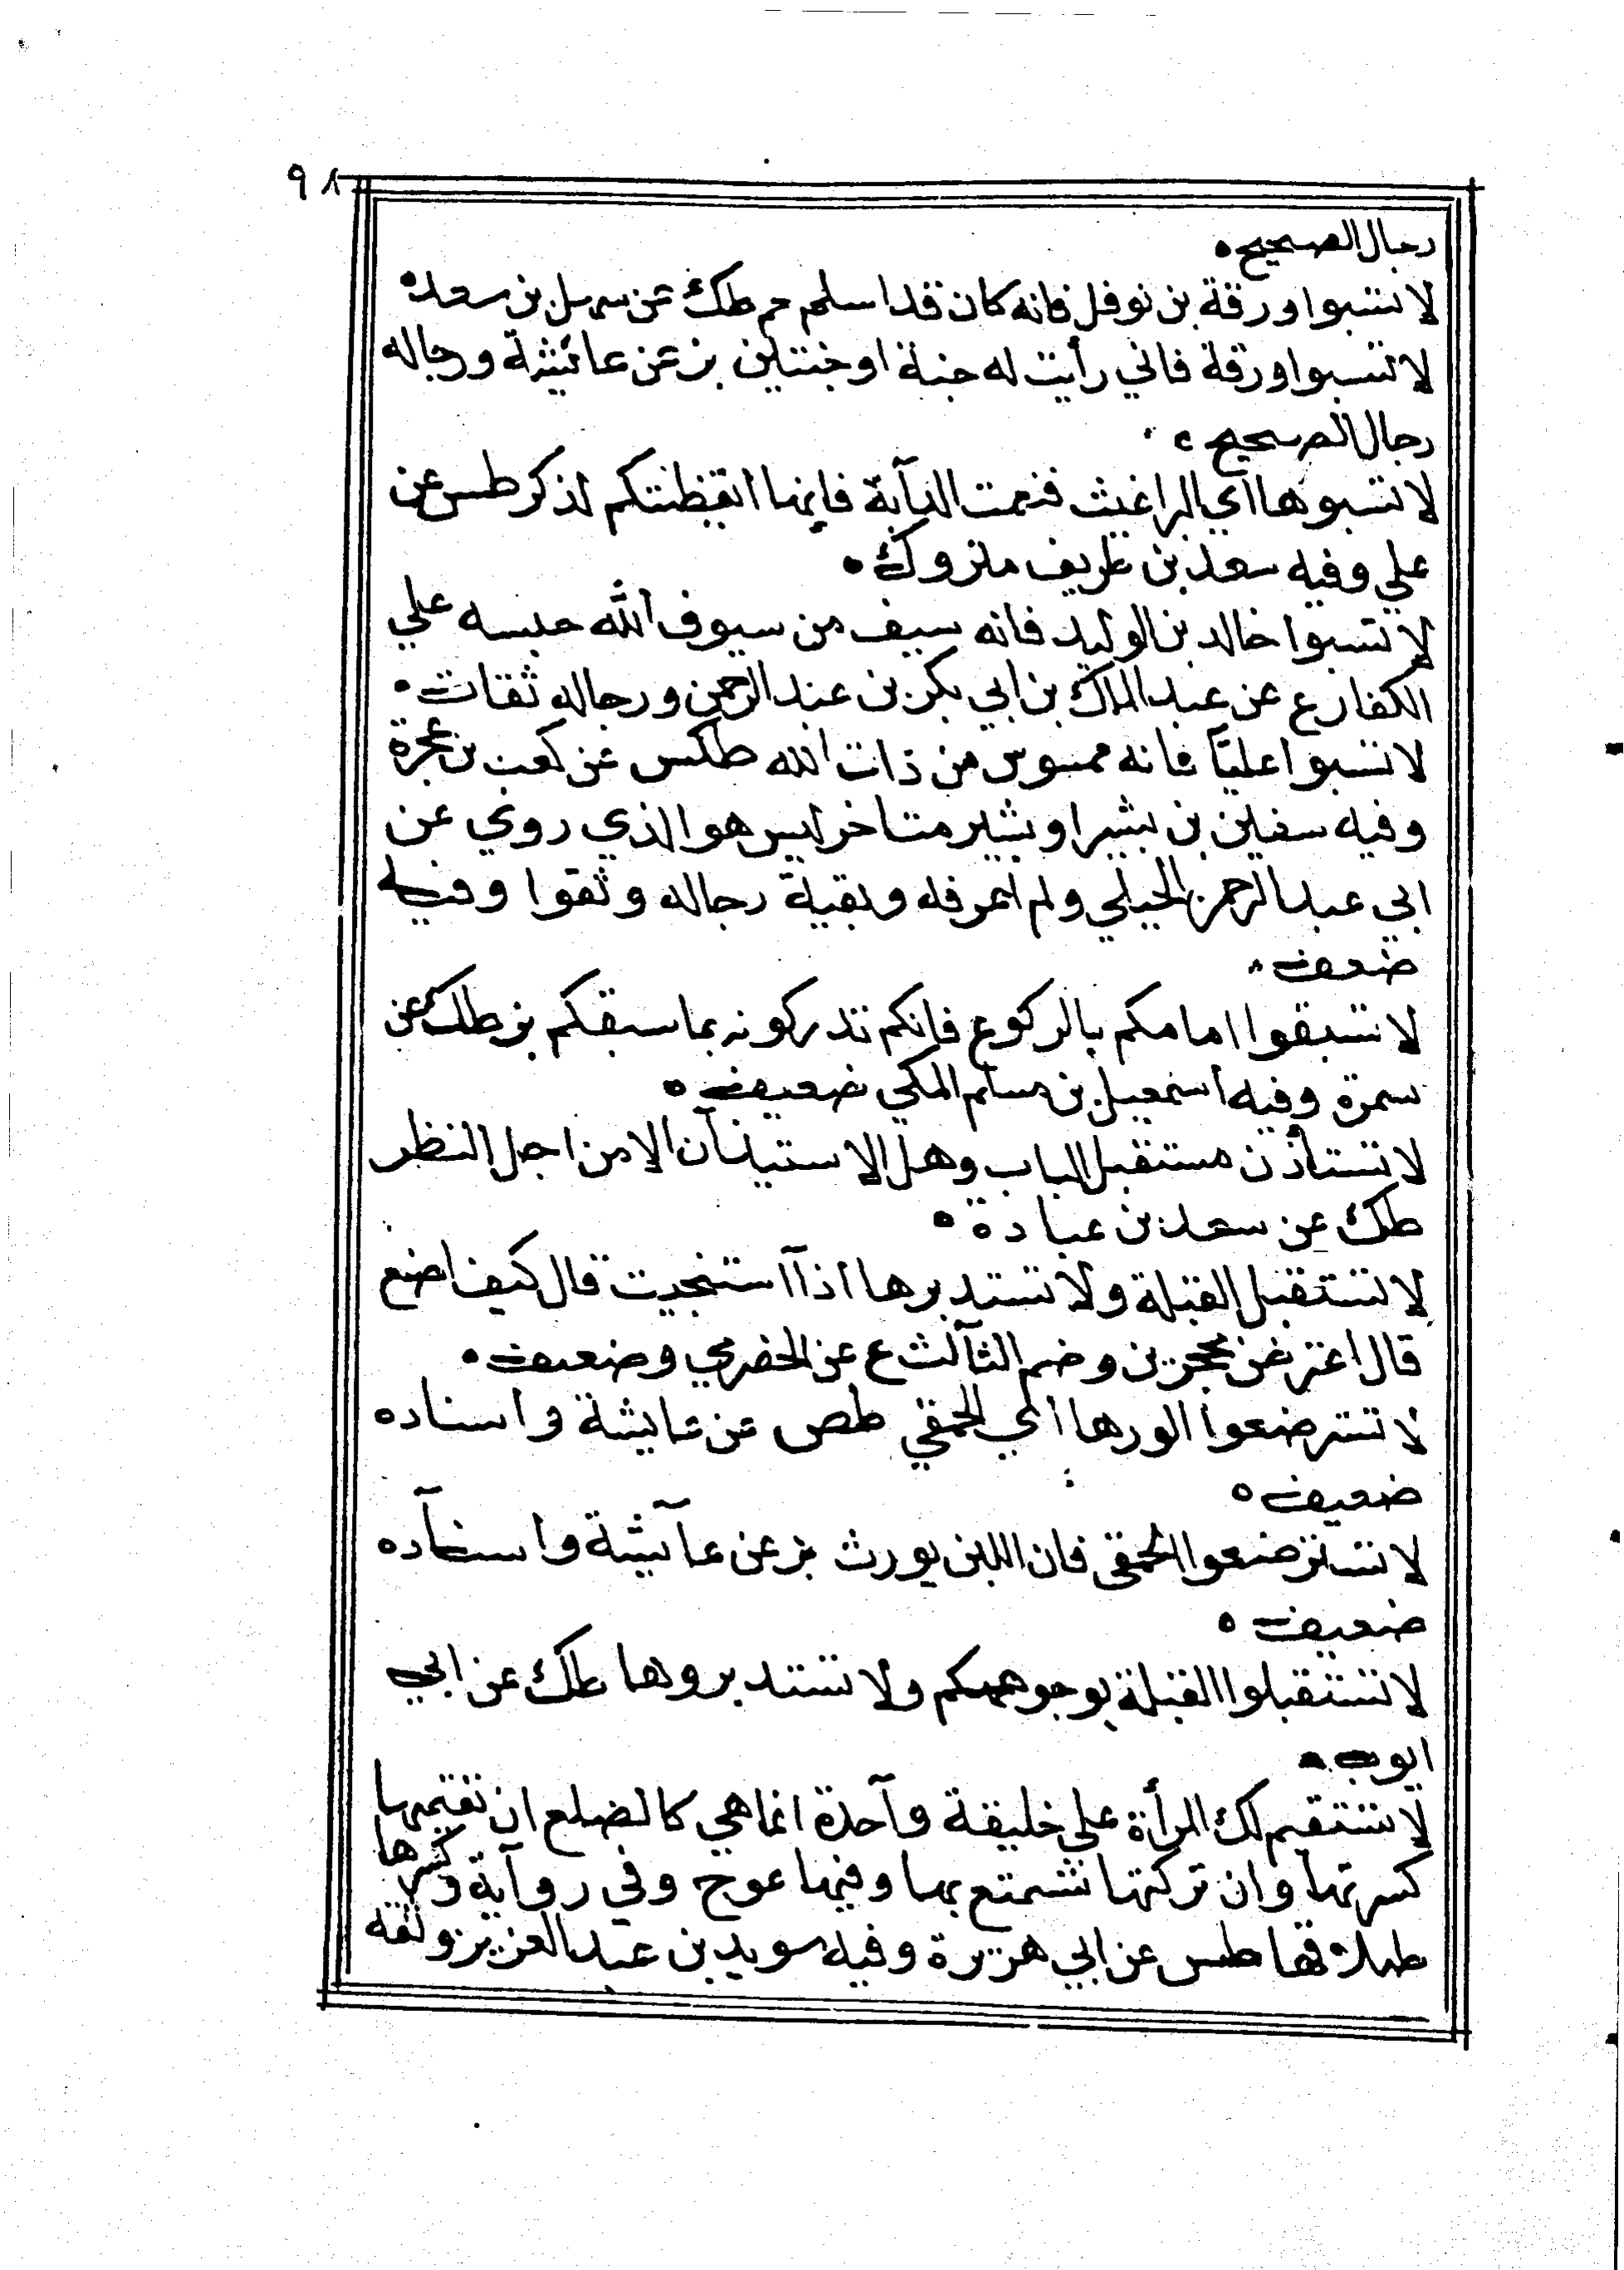 ٩٨
رجال الصحيح ه
لا تسبوا ورقة بن نوفل فانه كان قد اسلم حم طك عن سهل بن سعد ه
لا تسبوا ورقة فاني رأيت له جنة او جنتين بز عن عائيشة ورجاله
رجال الصحيح ه
لا تسبوها اي البراغيث فنعمت الدآبة فانها ايقظتكم لذكر طس عن
علي وفيه سعد بن ظريف متروك ه
لا تسبوا خالد بن الوليد فانه سيف من سيوف الله حبسه علي
الكفار ع عن عبد الملك بن ابي بكر بن عبد الرحمن ورجاله ثقات ه
لا تسبوا عليًّا فانه ممسوس من ذات الله طكس عن كعب بن عجرة
وفيه سفين بن بشير او بشير متاخر ليس هو الذي روي عن
ابي عبد الرحمن الحبلي ولم اعرفه وبقية رجاله وثقوا وفيه
ضعف ه
لا تسبقوا امامكم بالركوع فانكم تدركونه بما سبقكم بز طك عن
سمرة وفيه اسمعيل بن مسلم المكي ضعيف ه
لا تستأذن مستقبل الباب وهل الاستيذآن الا من اجل النظر
طك عن سعد بن عبادة ه
لا تستقبل القبلة ولا تستدبرها اذآ استنجيت قال كيف اضع
قال اعترض بحجرين وضم الثآلث ع عن الحضرمي وضعيف ه
لا تسترضعوا الورها اي الحمقي طص عن عايشة واسناده
ضعيف ه
لا تسترضعوا الحمقي فان اللبن يورث بز عن عآيشة واسنآده
ضعيف ه
لا تستقبلوا القبلة بوجوهكم ولا تستدبروها طك عن ابي
ايوب ه
لا تستقيم لك المرأة علي خليقة وآحدة انما هي كالضلع ان تقيمها
كسرتها وان تركتها تستمتع بها وفيها عوج وفي روآية وكسرها
طلاقها طس عن ابي هريرة وفيه سويد بن عبد العزيز وثقه